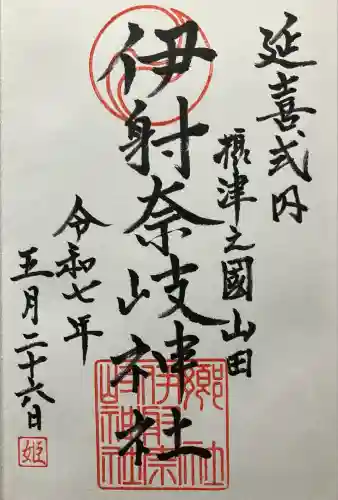 延喜式内
摂津之國山田
伊射奈岐神社
令和七年
五月二十六日
姫